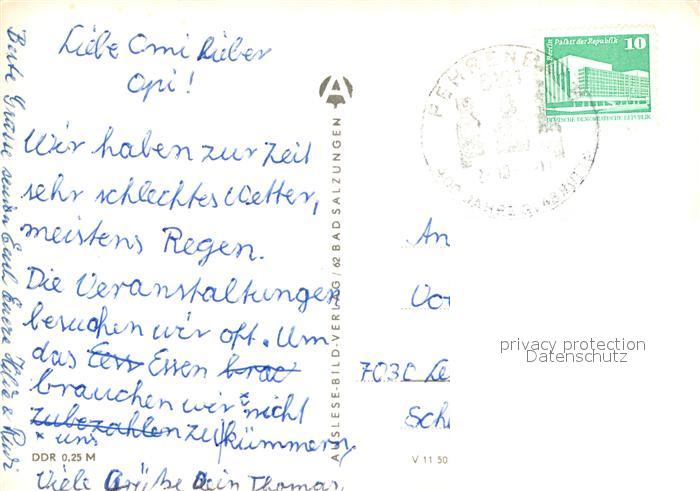 Liebe Omi Lieber
Opi!
Wir haben zur Zeit
sehr schlechtes Wetter,
meistens Regen.
Die Veranstaltungen
besuchen wir oft. Um
das Essen
brauchen wir * nicht
zubezahlen zu kümmern
* uns
Viele Grüße Dein Thomas
Beste Grüße senden Euch Eure
DDR 0,25 M
AUSLESE-BILD-VERLAG / 62 BAD SALZUNGEN
A
Berlin Palast der Republik 10
DEUTSCHE DEMOKRATISCHE REPUBLIK
An
7030 Le
V 11 50
privacy protection
Datenschutz